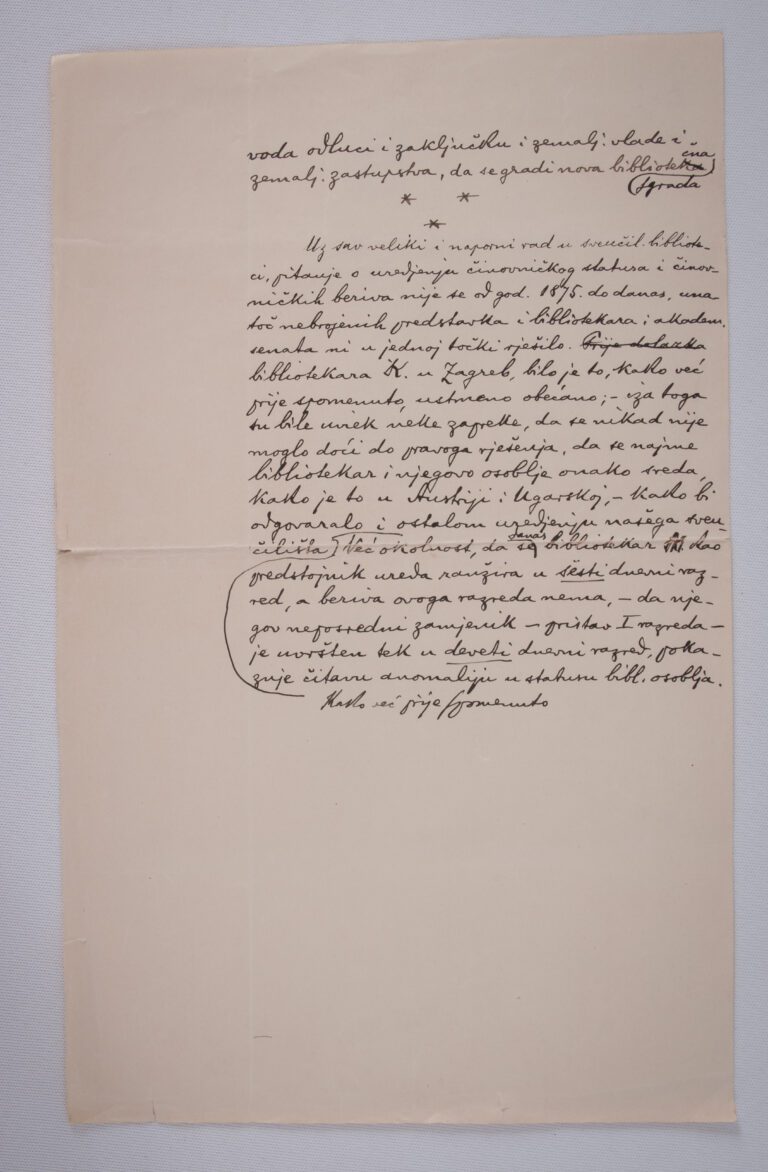 voda odluci i zaključku i zemalj. vlade i
zemalj. zastupstva, da se gradi nova bibliotečna
(zgrada)
* *
*
Uz sav veliki i naporni rad u sveučil. bibliote-
ci, pitanje o uredjenju činovničkog statusa i činov-
ničkih beriva nije se od god. 1875. do danas, una-
toč nebrojenih predstavka i bibliotekara i akadem.
senata ni u jednoj točki rješilo. Prije dolazka
bibliotekara K. u Zagreb, bilo je to, kako već
prije spomenuto, ustmeno obećano; – iza toga
su bile uviek neke zapreke, da se nikad nije
moglo doći do pravoga rješenja, da se najme
bibliotekar i njegovo osoblje onako sreda,
kako je to u Austriji i Ugarskoj, – kako bi
odgovaralo i ostalom uredjenju našega sveu-
čilišta. Već okolnost, da se danas bibliotekar kao
predstojnik ureda ranžira u šesti dnevni raz-
red, a beriva ovoga razreda nema, – da nje-
gov neposredni zamjenik – pristav I razreda –
je uvršten tek u deveti dnevni razred, poka-
zuje čitavu anomaliju u statusu bibl. osoblja.
Kako već prije spomenuto